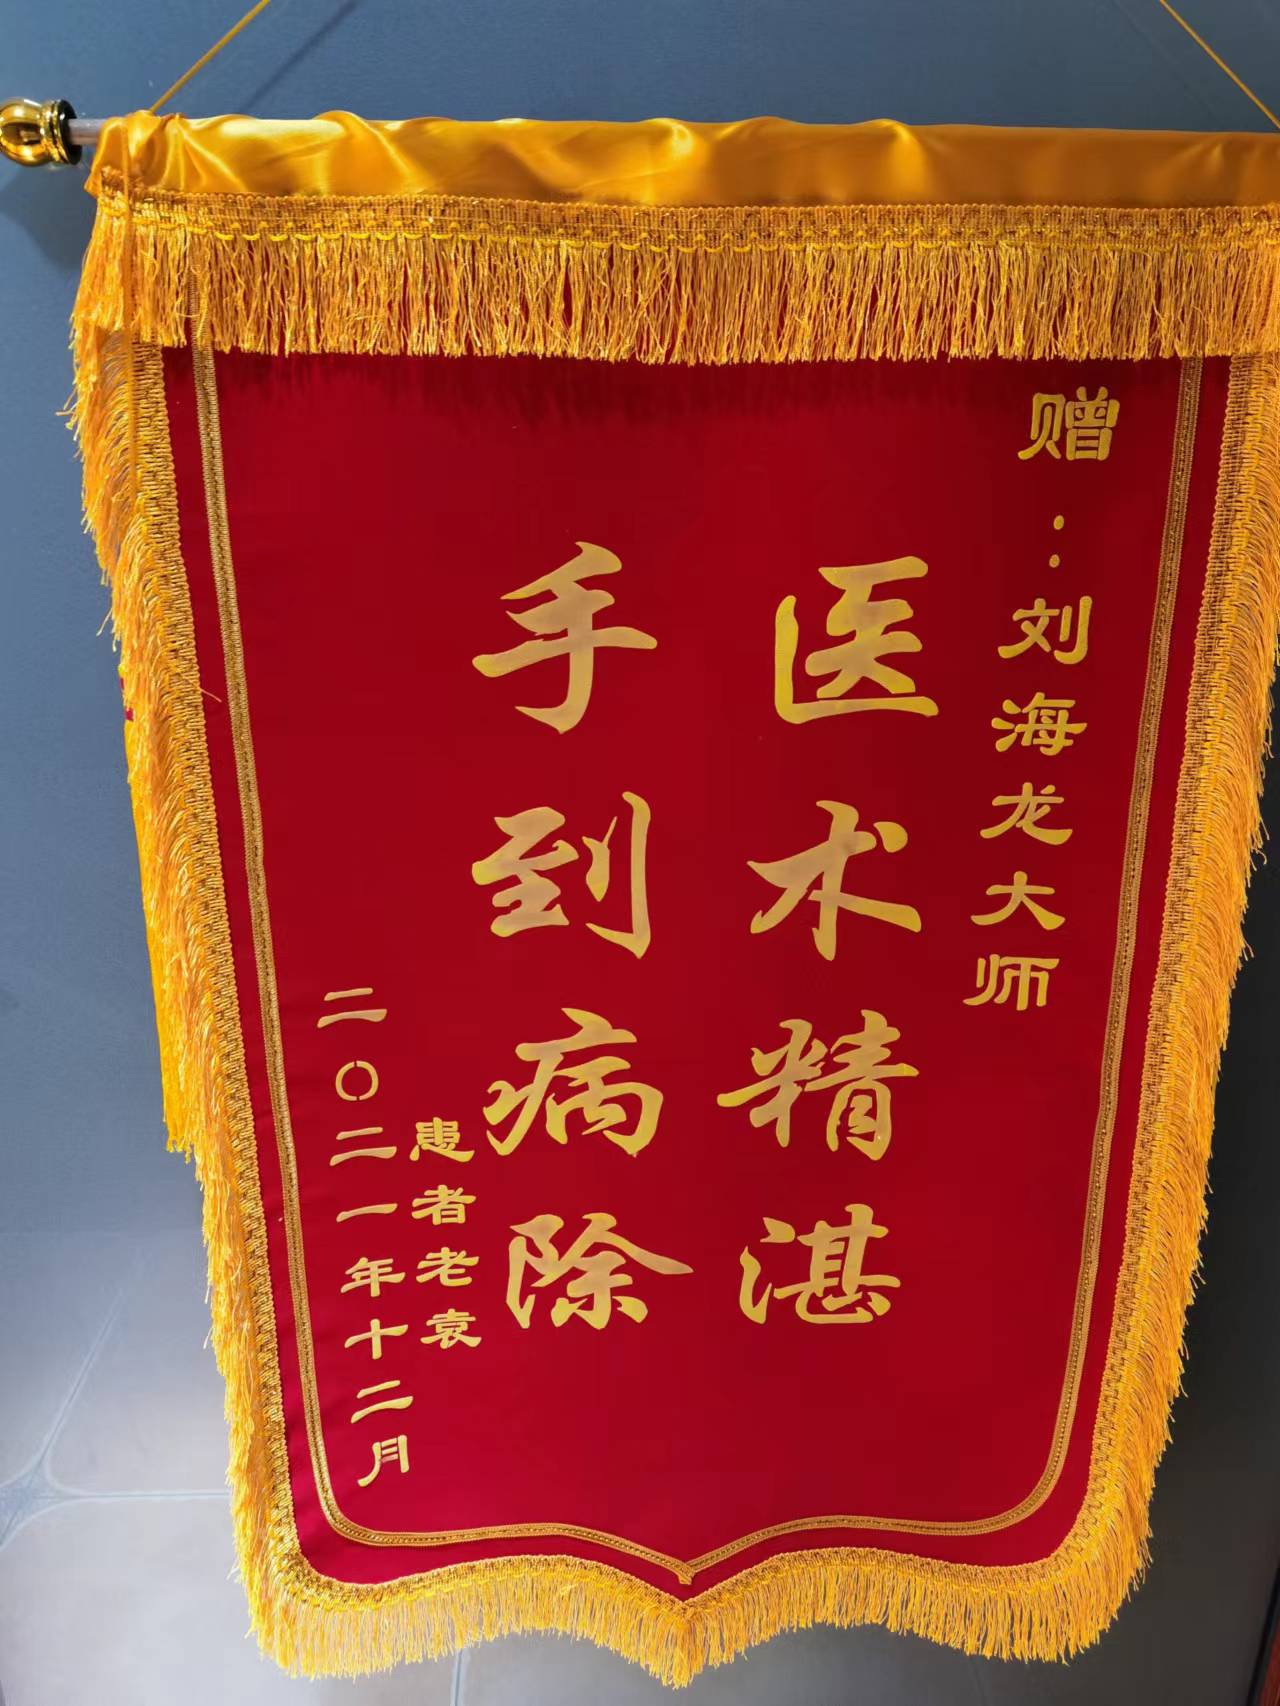 赠：刘海龙大师
医术精湛
手到病除
患者老袁
二〇二一年十二月